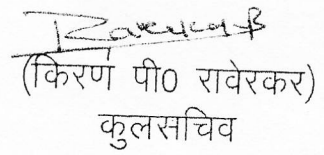 (किरण पी0 रावेरकर)
कुलसचिव